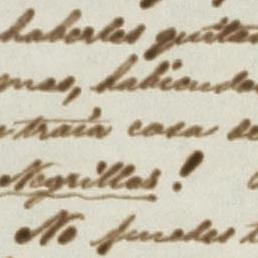 haberles quitar
mas, habiendo
traia cosa de
Negrillos!
No puedes t